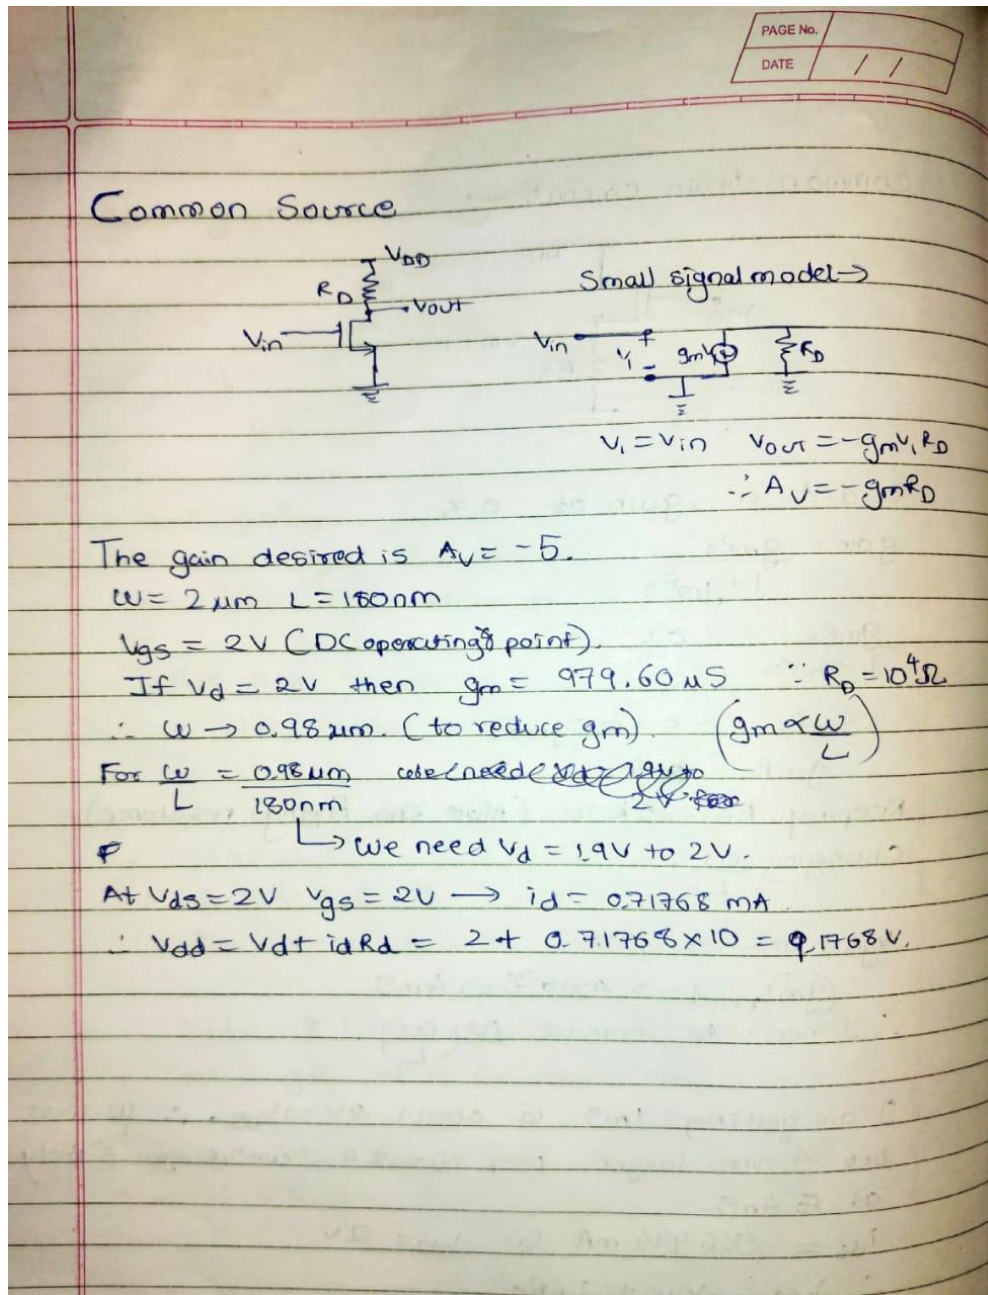 PAGE No.
DATE / /
Common Source
VDD
RD
Vout
Vin
Small signal model→
Vin + V1 - gmV1 RD
V1 = Vin Vout = -gmV1RD
∴ AV = -gmRD
The gain desired is AV = -5.
W = 2 μm L = 180nm
Vgs = 2V (DC operating point).
If Vd = 2V then gm = 979.60 μS ∵ RD = 10⁴Ω
∴ W → 0.98 μm. (to reduce gm). (gm ∝ W/L)
For W/L = 0.98 μm/180nm
↳ We need Vd = 1.9V to 2V.
At Vds = 2V Vgs = 2V → id = 0.71768 mA
∴ Vdd = Vd + idRd = 2 + 0.71768 × 10 = 9.1768 V.